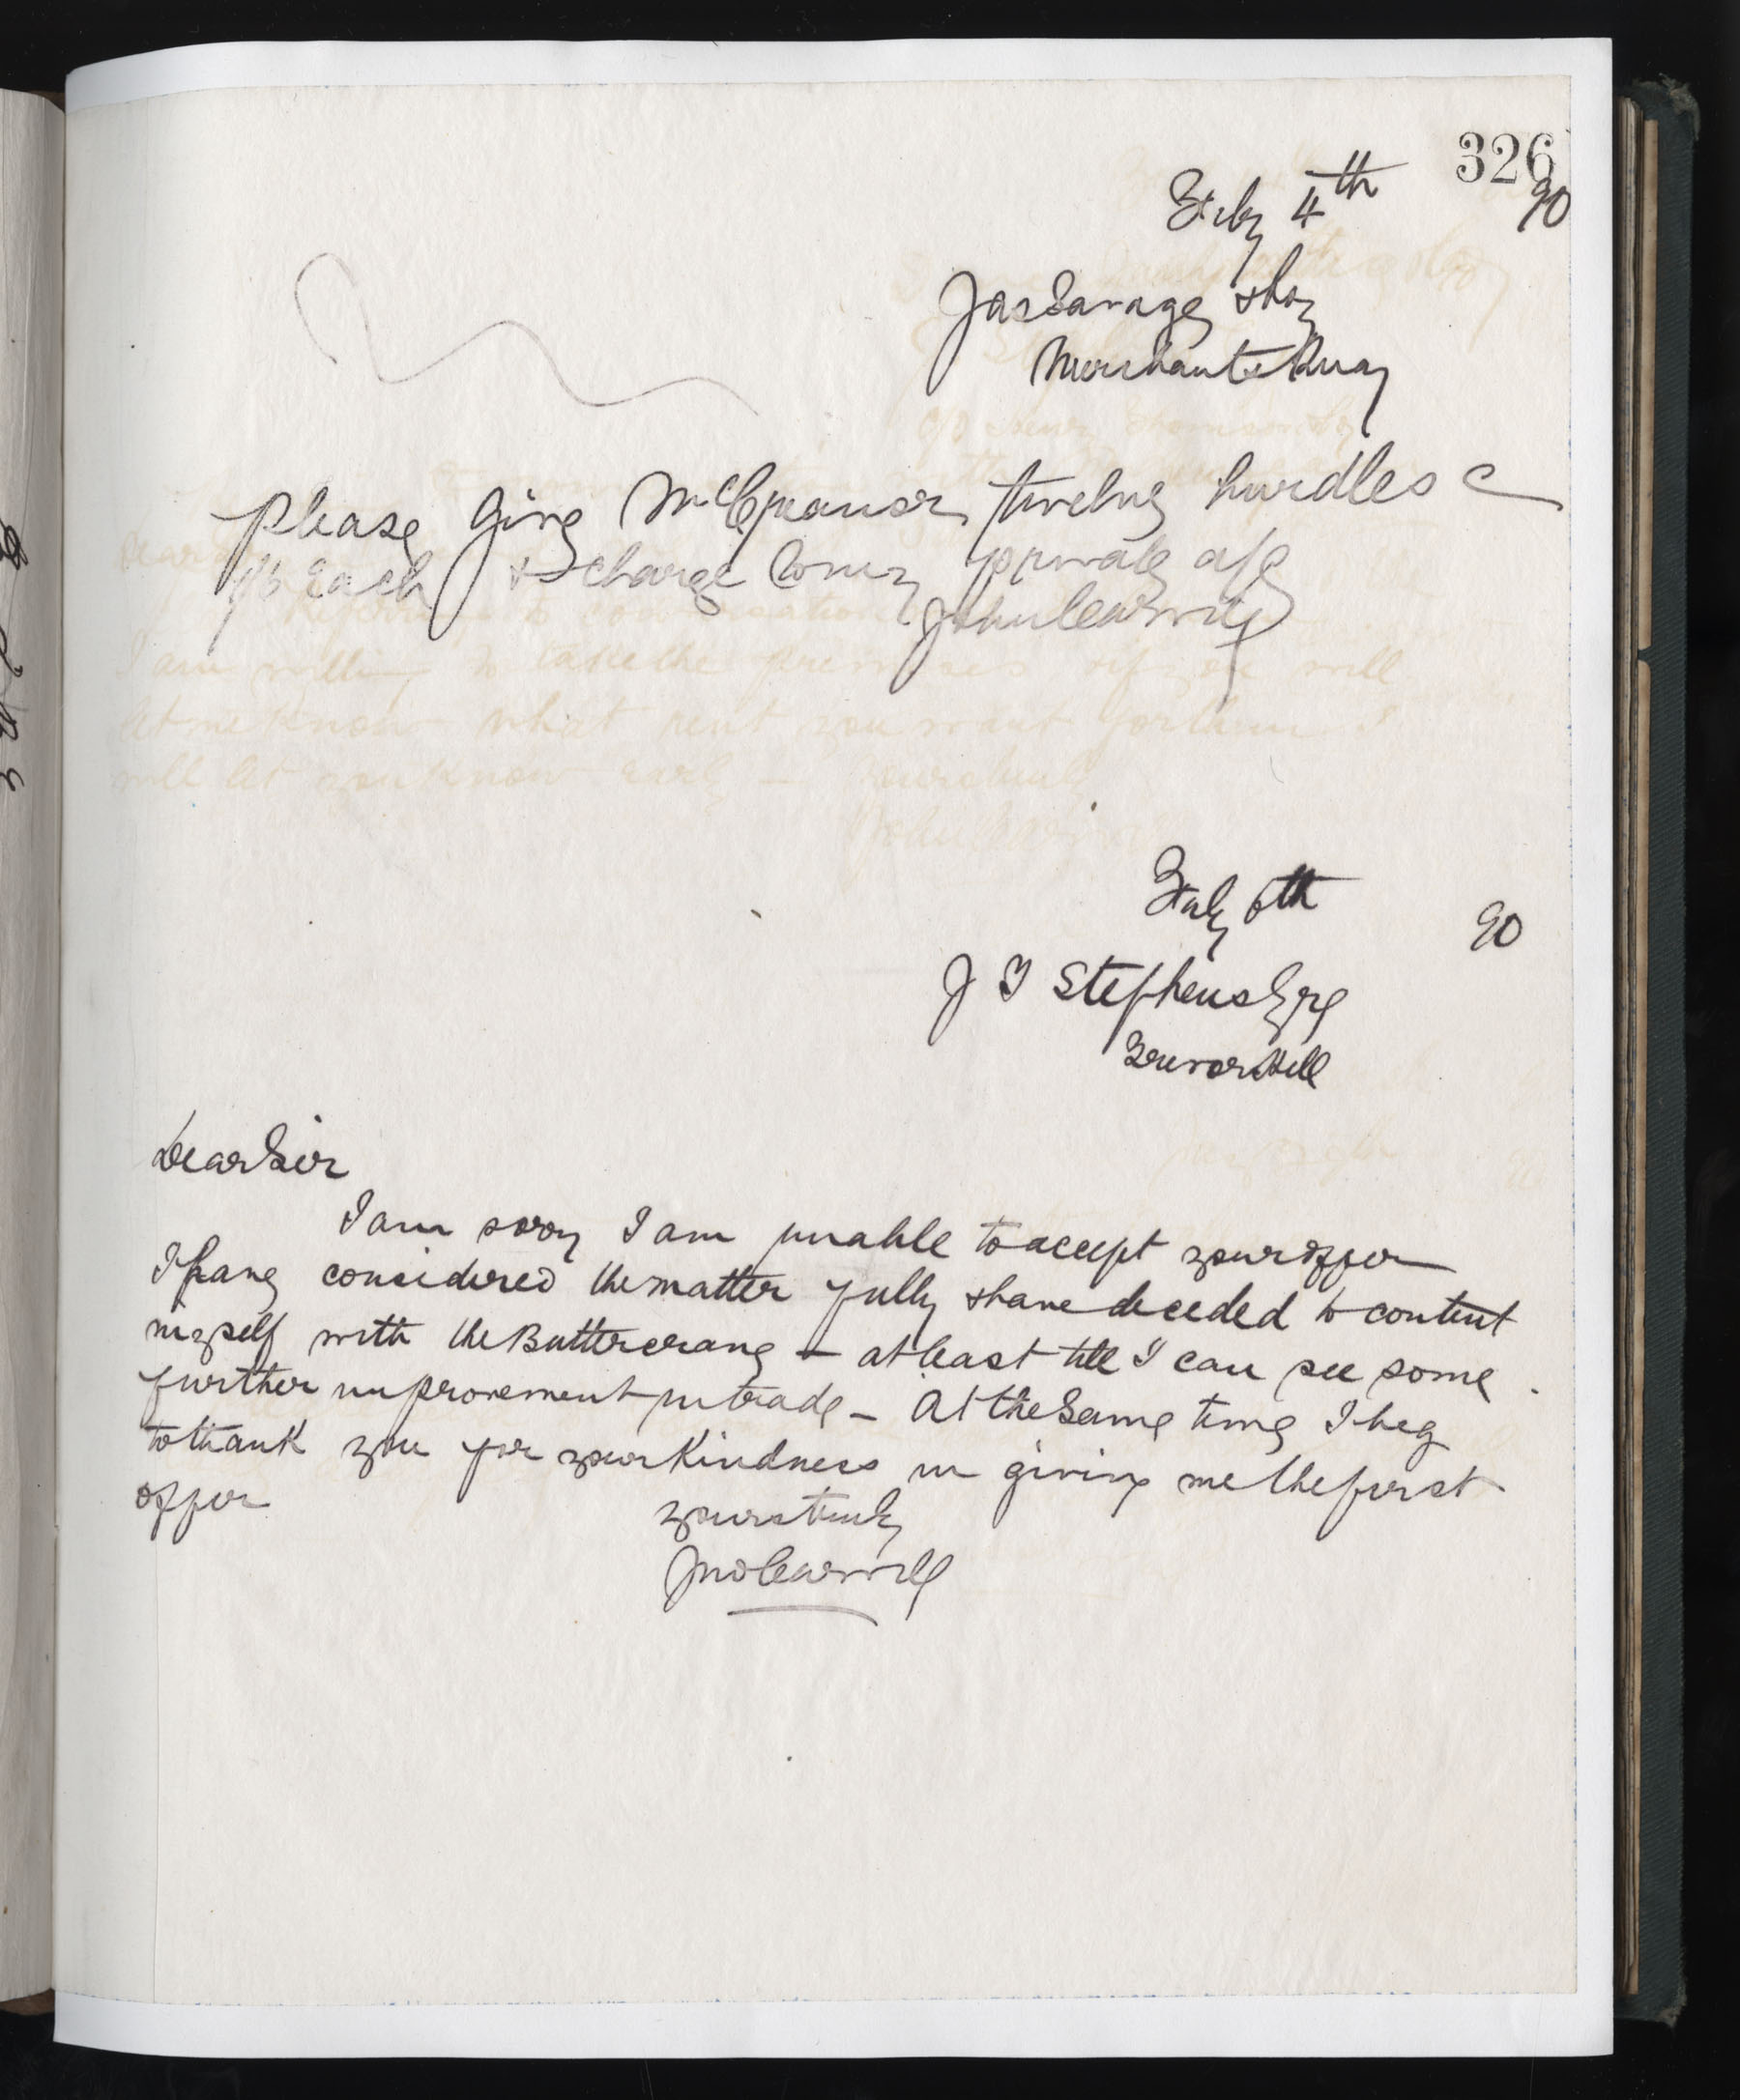 326
Feby 4th 90
Jas Savage & Coy
Merchants Quay
Please Give twelve hurdles @
1/6 Each & charge to my private a/c
John
Feby 6th 90
J J Stephens Esqre
Trevor Hill
Dear Sir
I am sorry I am unable to accept your offer
I have considered the matter fully & have decided to content
myself with the Buttercrane — at least till I can see some
further improvement in trade — At the Same time I beg
to thank you for your Kindness in giving me the first
offer
yours truly
Jno